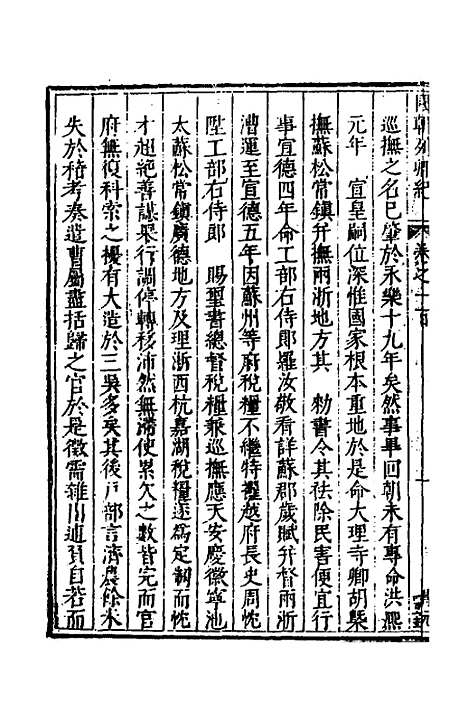 國朝列卿紀 卷之一百
巡撫之名已肇於永樂十九年矣然事畢回朝未有專命洪熙
元年 宣皇嗣位深惟國家根本重地於是命大理寺卿胡槩
撫蘇松常鎮并撫兩浙地方其 勅書令其祛除民害便宜行
事宣德四年命工部右侍郎羅汝敬看詳蘇郡歲賦并督兩浙
漕運至宣德五年因蘇州等府稅糧不繼特擢越府長史周忱
陞工部右侍郎 賜聖書總督稅糧兼巡撫應天安慶徽寧池
太蘇松常鎮廣德地方及理浙西杭嘉湖稅糧遂爲定制而忱
才超絶善謀舉行調停轉移沛然無滯使累欠之數皆完而官
府無復科索之擾有大造於三吳多矣其後戶部言濟農餘米
失於稽考奏遣曹屬盡括歸之官於是徵需雜出逋負自若而